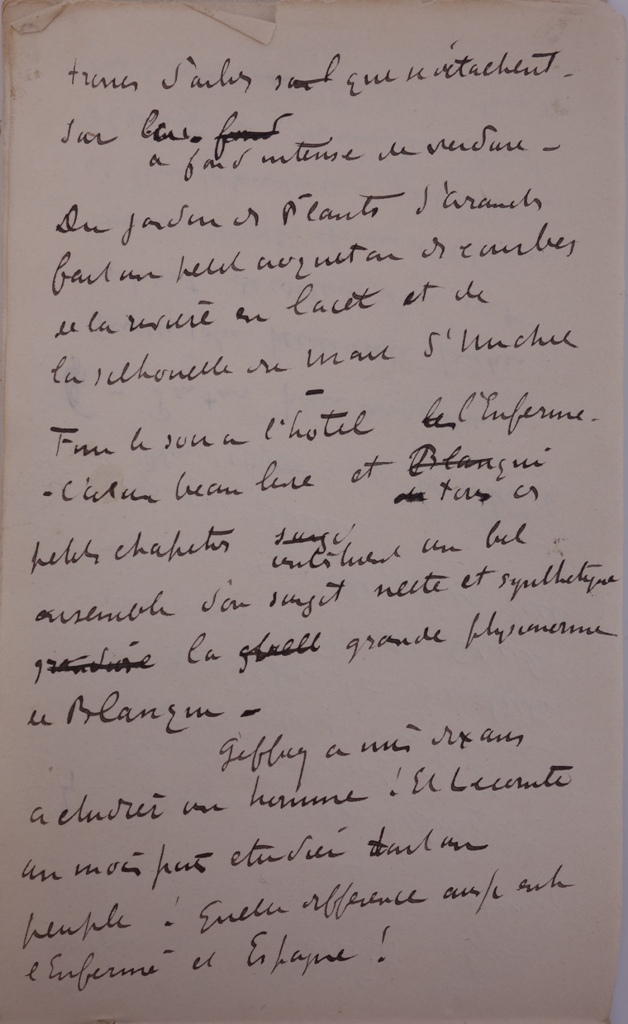 troncs d'arbres sont que se détachent -
sur leur fond
a fond intense de verdure -
Du jardin des Plants d'Avranches
fait un petit croqueton des courbes
de la rivière en lacet et de
la silhouette du mont St Michel
Fini le soir a l'hôtel le l'Enferme-
- C'est un beau livre et Blanqui
de tous ces
petits chapitres surgi
un bel
ensemble d'ou surgit nette et synthetique
la grande physionomie
de Blanqui -
Geffroy a mis dix ans
a etudier un homme ! Et Lecomte
un mois pour etudier tout un
peuple ! Quelle difference aussi entre
l'Enfermé et Espagne !